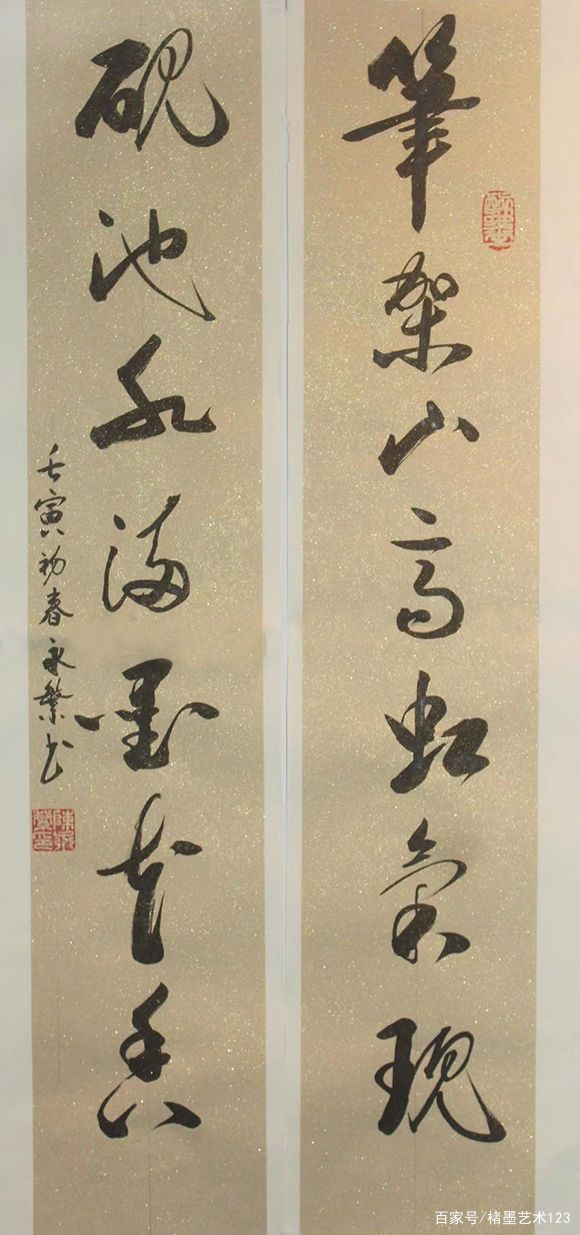 筆架山高虹氣現
硯池水滿墨花香
壬寅初春永繁书
百家号/楮墨艺术123